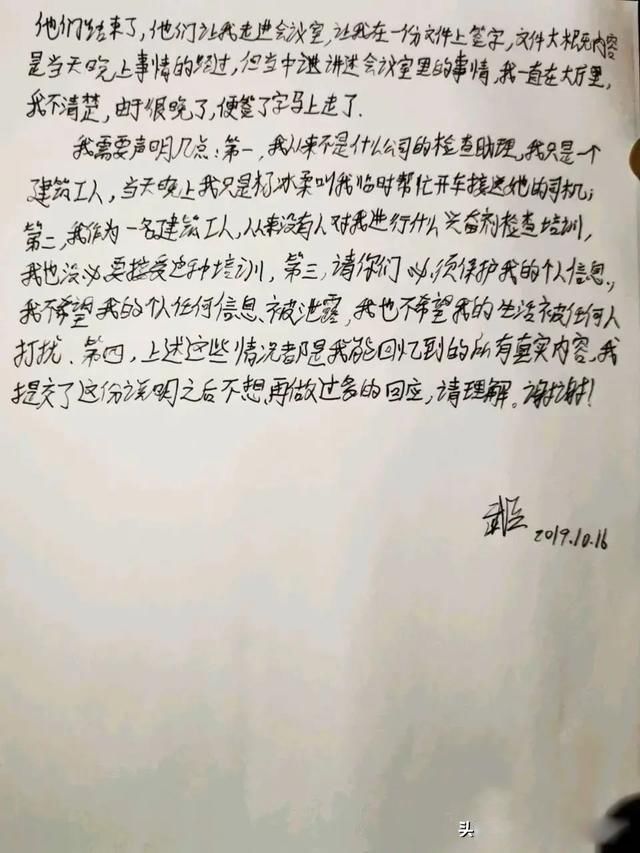 他们结束了，他们让我走进会议室，让我在一份文件上签字，文件大概内容
是当天晚上事情的经过，但当中讲述会议室里的事情，我一直在大厅里，
我不清楚，由于很晚了，便签了字马上走了．
我需要声明几点：第一，我从来不是什么公司的检查助理，我只是一个
建筑工人，当天晚上我只是杨冰柔叫我临时帮忙开车接送她的司机；
第二，我作为一名建筑工人，从来没有人对我进行什么兴奋剂检查培训，
我也没必要接受这种培训，第三，请你们必须保护我的个人信息，
我不希望我的个人任何信息被泄露，我也不希望我的生活被任何人
打扰．第四，上述这些情况都是我能回忆到的所有真实内容，我
提交了这份说明之后不想再做过多的回应，请理解。谢谢！
2019.10.16
头